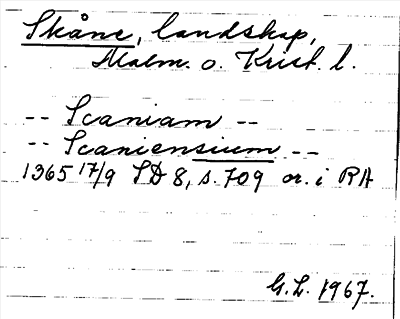 Skåne, landskap,
Malm. o. Krist. l.
-- Scaniam --
-- Scaniensium --
1365 17/9 SD 8, s. 709 or. i RA
G.L. 1967.